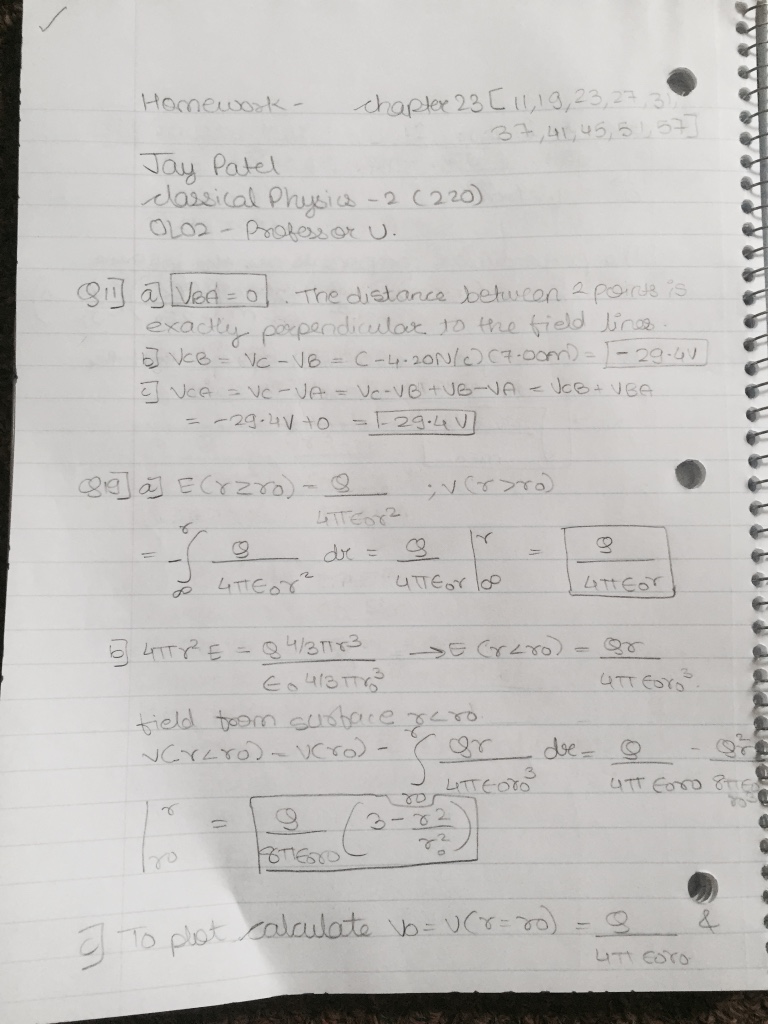 Homework - chapter 23 [11,19,23,27,31,
37,41,45,51,57]
Jay Patel
classical Physics - 2 (220)
OL02 - Professor U.
Q11] a] VBA = 0. The distance between 2 points is
exactly perpendicular to the field lines.
b] VCB = VC - VB = (-4.20N/C)(7.00m) = -29.4V
c] VCA = VC - VA = VC-VB + VB-VA = VCB + VBA
= -29.4V + 0 = -29.4V
Q19] a] E(r≥r0) - Q/4πε0r² ; V(r>r0)
= -∫_∞^r Q/4πε0r² dr = Q/4πε0r |_∞^r = Q/4πε0r
b] 4πr²E = Q 4/3πr³/ε0 4/3πr0³ → E(r<r0) = Qr/4πε0r0³.
field from surface r<r0
V(r<r0) - V(r0) - ∫_r0^r Qr/4πε0r0³ dr = Q/4πε0r0 - Qr²/8πε0r0³
|_r0^r = Q/8πε0r0 (3 - r²/r0²)
c] To plot calculate V0 = V(r=r0) = Q/4πε0r0 &